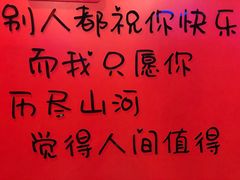 别人都祝你快乐
而我只愿你
历尽山河
觉得人间值得